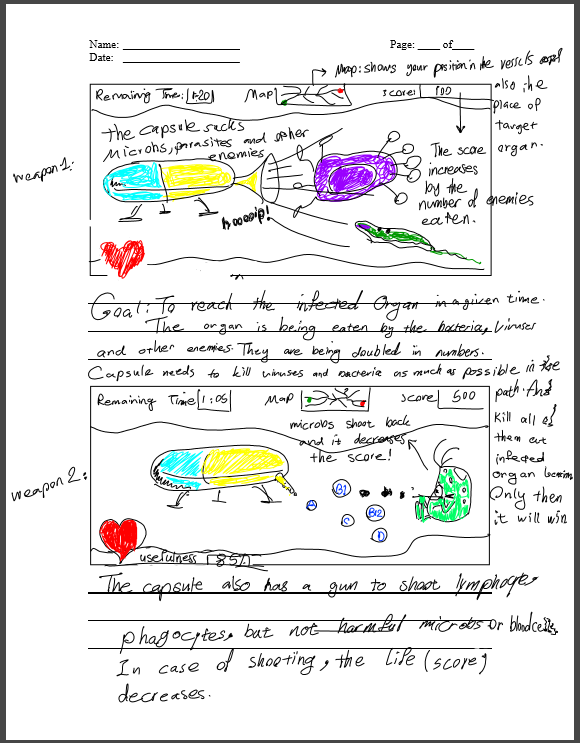 Name:
Date:
Page: ____ of____
Map: shows your position in the vessels and
also the
place of
target
organ.
Remaining Time: 1:20
Map
score: 100
weapon 1:
the capsule sucks
Microbs, parasites and other
enemies
The score
increases
by the
number of enemies
eaten.
Goal: To reach the infected Organ in a given time.
The organ is being eaten by the bacteria, viruses
and other enemies. They are being doubled in numbers.
Capsule needs to kill viruses and bacteria as much as possible in the
path. And
kill all of
them at
infected
organ
Only then
it will win
Remaining Time 1:05
Map
score 500
weapon 2:
microbs shoot back
and it decreases
the score!
B2
C
B12
D
usefulness 85%
The capsule also has a gun to shoot lymphocytes
phagocytes, but not harmful microbs or blood cells.
In case of shooting, the life (score)
decreases.